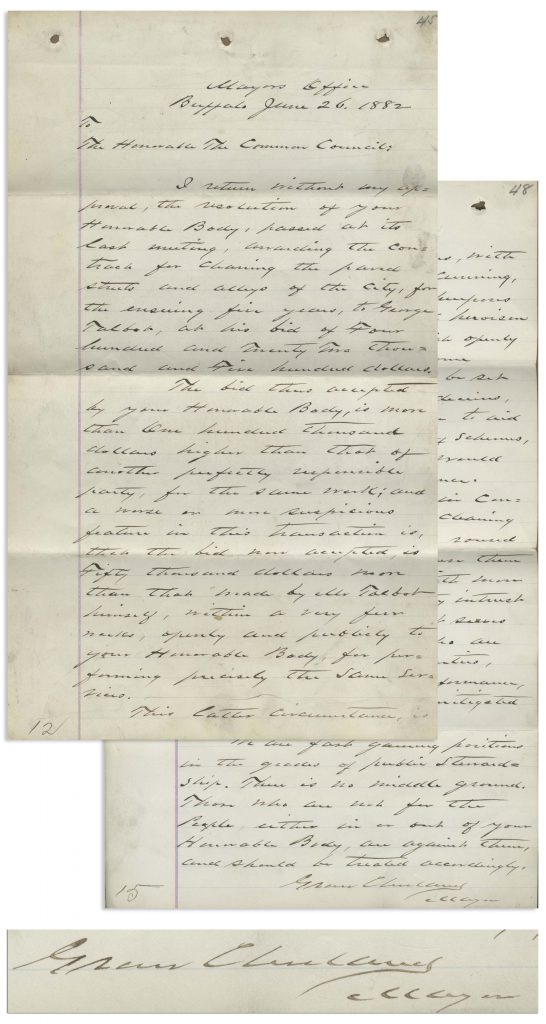 45
Mayors Office
Buffalo June 26. 1882
To
The Honorable The Common Council:
I return without my ap=
proval, the resolution of your
Honorable Body, passed at its
last meeting, awarding the Con=
tract for cleaning the paved
streets and alleys of the City, for
the ensuing five years, to George
Talbot, at his bid of Four
hundred and Twenty Two thou=
sand and Five hundred dollars.
The bid thus accepted
by your Honorable Body, is more
than One hundred thousand
dollars higher than that of
another perfectly responsible
party, for the same work; and
a worse or more suspicious
feature in this transaction is,
that the bid now accepted, is
Fifty thousand dollars more
than that made by Mr Talbot
himself, within a very few
weeks, openly and publicly to
your Honorable Body, for per=
forming precisely the same Ser=
vices.
This latter circumstance, is
12
48
with
purpose
openly
be set
to aid
schemes,
would
in Con=
cleaning
them
more
interest
seems
who are
mitigated
We are fast gaining positions
in the grades of public Steward=
ship. There is no middle ground.
Those who are not for the
People, either in or out of your
Honorable Body, are against them,
and should be treated accordingly.
Grover Cleveland
Mayor
15
Grover Cleveland
Mayor